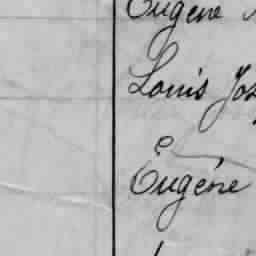 Eugène
Louis Jos
Eugène